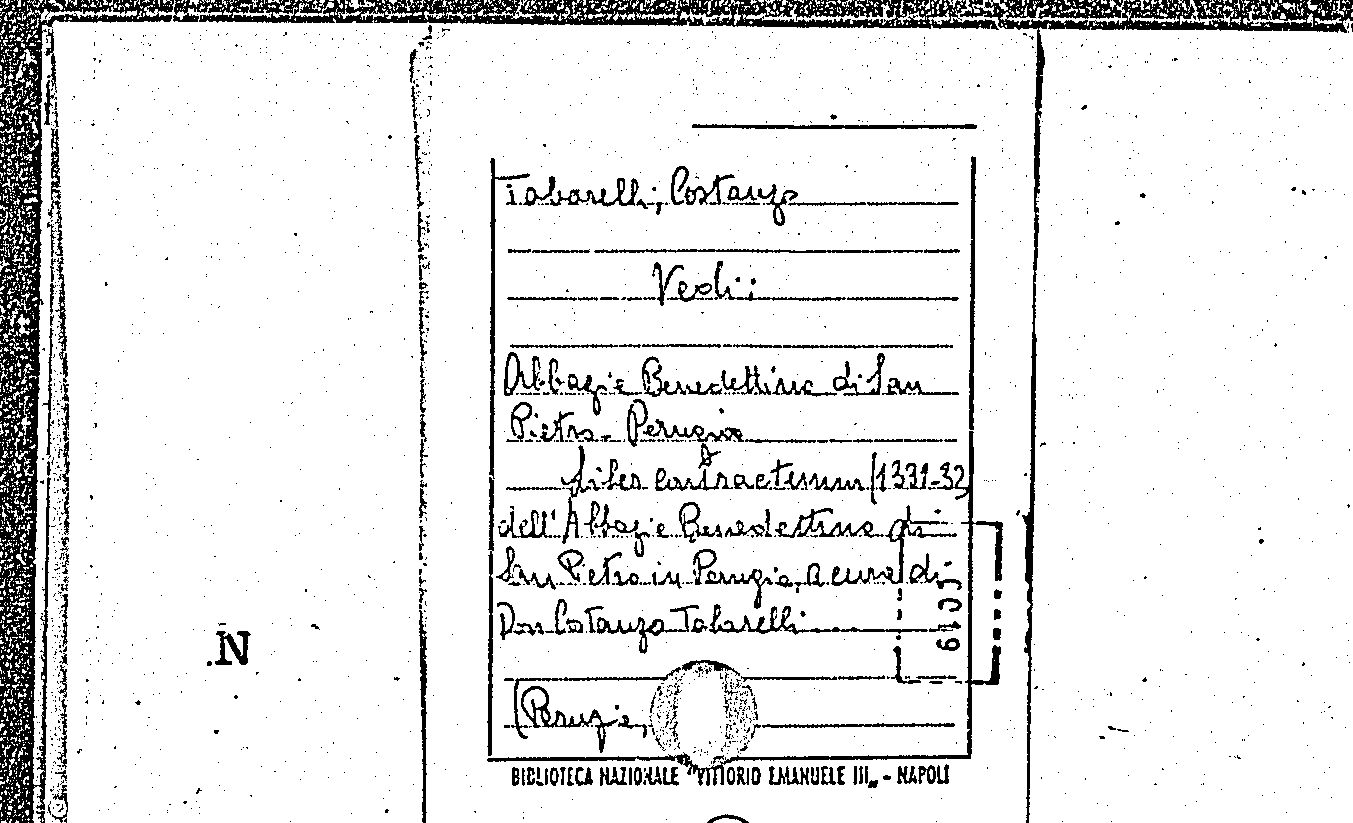 Tabarelli, Costanzo
Vedi:
Abbazia Benedettina di San
Pietro - Perugia
Liber contractuum (1331-32)
dell'Abbazia Benedettina di
San Pietro in Perugia, a cura di
Don Costanzo Tabarelli
(Perugia,
BIBLIOTECA NAZIONALE "VITTORIO EMANUELE III„ - NAPOLI
N.